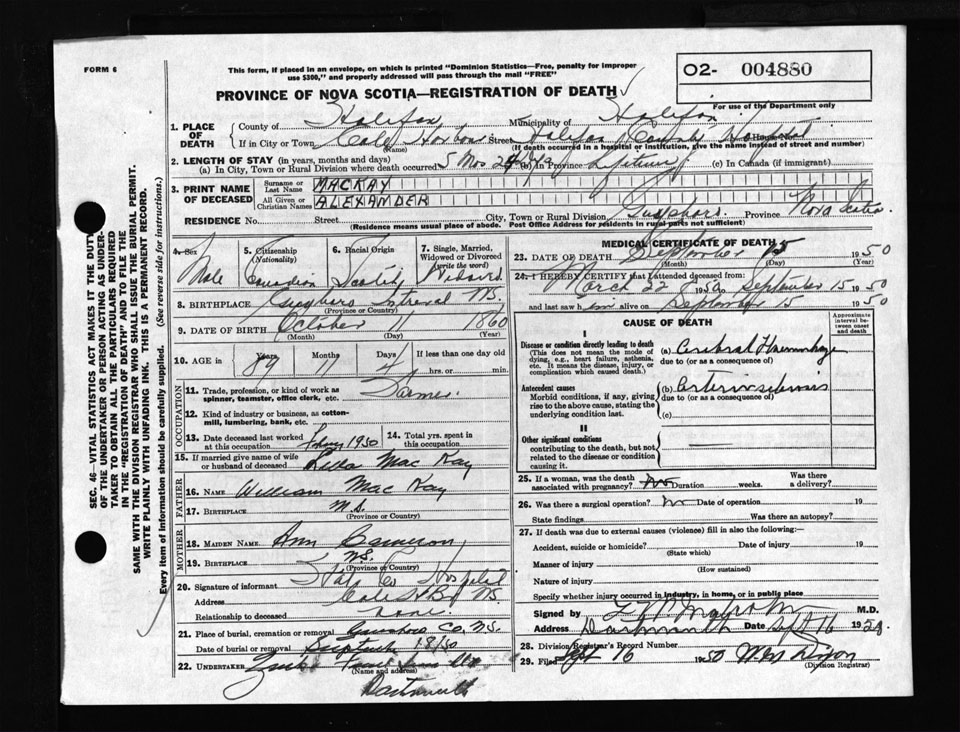 FORM 6
This form, if placed in an envelope, on which is printed "Dominion Statistics—Free, penalty for improper
use $300," and properly addressed will pass through the mail "FREE"
O2- 004880
PROVINCE OF NOVA SCOTIA—REGISTRATION OF DEATH
For use of the Department only
1. PLACE OF DEATH
County of Halifax Municipality of Halifax
If in City or Town Cole Harbour Street Halifax County Hospital House No.
(Name) (If death occurred in a hospital or institution, give the name instead of street and number)
2. LENGTH OF STAY (in years, months and days)
(a) In City, Town or Rural Division where death occurred 5 Mos 24 dys (b) In Province Lifetime (c) In Canada (if immigrant)
3. PRINT NAME OF DECEASED
Surname or Last Name MACKAY
All Given or Christian Names ALEXANDER
RESIDENCE No. Street City, Town or Rural Division Guysboro Province Nova Scotia
(Residence means usual place of abode. Post Office Address for residents in rural parts not sufficient)
4. Sex Male
5. Citizenship (Nationality) Canadian
6. Racial Origin Scotch
7. Single, Married, Widowed or Divorced (write the word) Widowed
8. BIRTHPLACE Guysboro Interval N.S.
(Province or Country)
9. DATE OF BIRTH October 11 1860
(Month) (Day) (Year)
10. AGE in 89 Years 11 Months 4 Days If less than one day old
hrs. or min.
OCCUPATION
11. Trade, profession, or kind of work as spinner, teamster, office clerk, etc. Farmer
12. Kind of industry or business, as cotton-mill, lumbering, bank, etc.
13. Date deceased last worked at this occupation 1950
14. Total yrs. spent in this occupation
15. If married give name of wife or husband of deceased Mac Kay
FATHER
16. NAME William Mac Kay
17. BIRTHPLACE N.S.
(Province or Country)
MOTHER
18. MAIDEN NAME Ann Cameron
19. BIRTHPLACE N.S.
(Province or Country)
20. Signature of informant Hfx Co Hospital
Address Cole Hbr N.S.
Relationship to deceased none
21. Place of burial, cremation or removal Guysboro Co, N.S.
Date of burial or removal September 18/50
22. UNDERTAKER
(Name and address)
Dartmouth
MEDICAL CERTIFICATE OF DEATH
23. DATE OF DEATH September 15 1950
(Month) (Day) (Year)
24. I HEREBY CERTIFY that I attended deceased from
March 22 1950 to September 15 1950
and last saw him alive on September 15 1950
CAUSE OF DEATH
Approximate interval between onset and death
I
Disease or condition directly leading to death
(This does not mean the mode of dying, e.g., heart failure, asthenia, etc. It means the disease, injury, or complication which caused death.)
(a) Cerebral Haemorrhage
due to (or as a consequence of)
Antecedent causes
Morbid conditions, if any, giving rise to the above cause, stating the underlying condition last.
(b) Arteriosclerosis
due to (or as a consequence of)
(c)
II
Other significant conditions
contributing to the death, but not related to the disease or condition causing it.
25. If a woman, was the death associated with pregnancy? No Duration weeks. Was there a delivery?
26. Was there a surgical operation? No Date of operation 19
State findings Was there an autopsy?
27. If death was due to external causes (violence) fill in also the following:—
Accident, suicide or homicide? Date of injury 19
(State which)
Manner of injury
(How sustained)
Nature of injury
Specify whether injury occurred in industry, in home, or in public place
Signed by M.D.
Address Dartmouth Date Sept 16 19
28. Division Registrar's Record Number
29. Filed Sept 16 1950
(Division Registrar)
SEC. 46—VITAL STATISTICS ACT MAKES IT THE DUTY
OF THE UNDERTAKER OR PERSON ACTING AS UNDER-
TAKER TO OBTAIN ALL THE PARTICULARS REQUIRED
IN THE "REGISTRATION OF DEATH" AND TO FILE THE
SAME WITH THE DIVISION REGISTRAR WHO SHALL ISSUE THE BURIAL PERMIT.
WRITE PLAINLY WITH UNFADING INK. THIS IS A PERMANENT RECORD.
Every item of information should be carefully supplied. (See reverse side for instructions.)